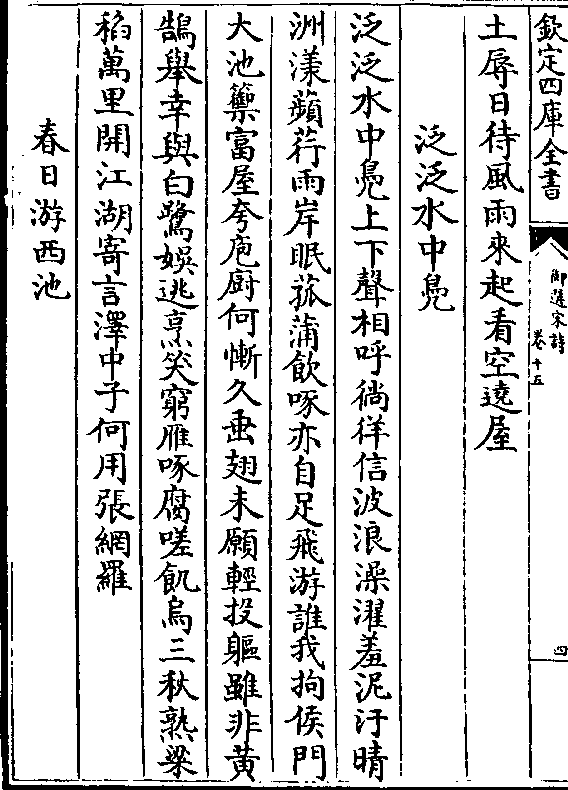 欽定四庫全書
御選宋詩
卷十五
四
土辱日待風雨來起看空遶屋
泛泛水中鳧
泛泛水中鳧上下聲相呼徜徉信波浪澡濯羞泥汙晴
洲漾蘋荇雨岸眠菰蒲飲啄亦自足飛游誰我拘侯門
大池籞富屋夸庖廚何慚久垂翅未願輕投軀雖非黄
鵠舉幸與白鷺娛逃烹笑窮雁啄腐嗟飢烏三秋熟粱
稻萬里開江湖寄言澤中子何用張網羅
春日游西池